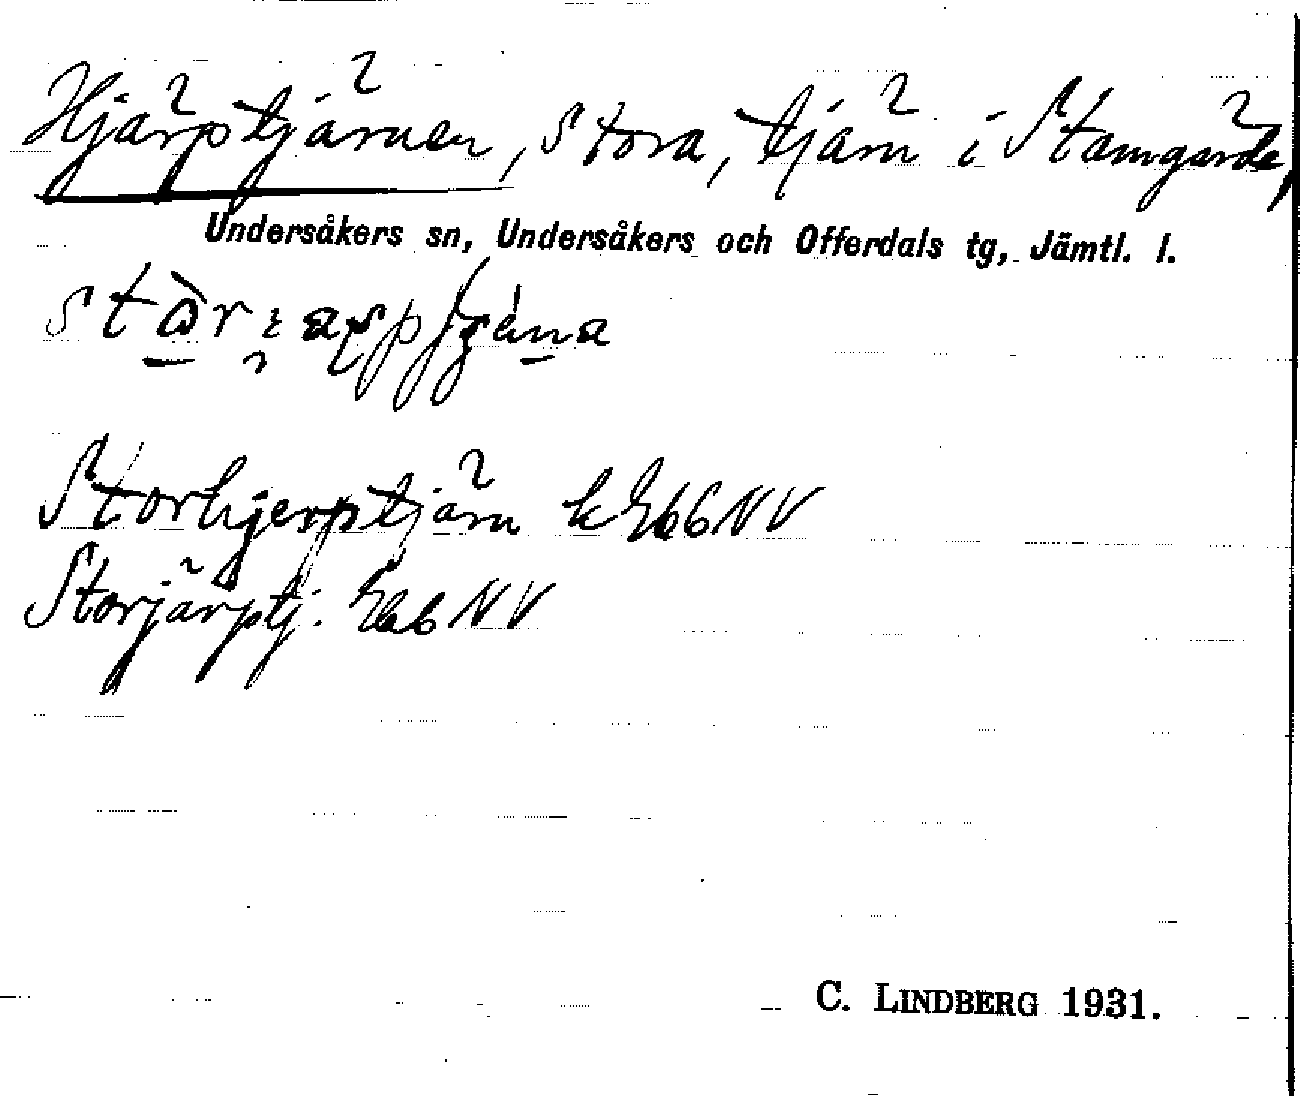 Hjärptjärnen, Stora, tjärn i Stamgärde,
Undersåkers sn, Undersåkers och Offerdals tg, Jämtl. l.
Storhjerptjärn k Eb6NV
Storjärptj. Eb6NV
C. LINDBERG 1931.